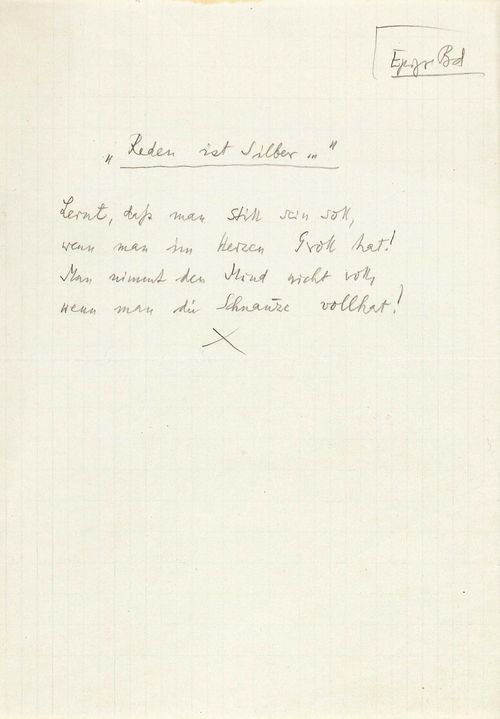 Epigr Bd
„Reden ist Silber..."
Lernt, daß man still sein soll,
wenn man im Herzen Groll hat!
Man nimmt den Mund nicht voll,
wenn man die Schnauze vollhat!